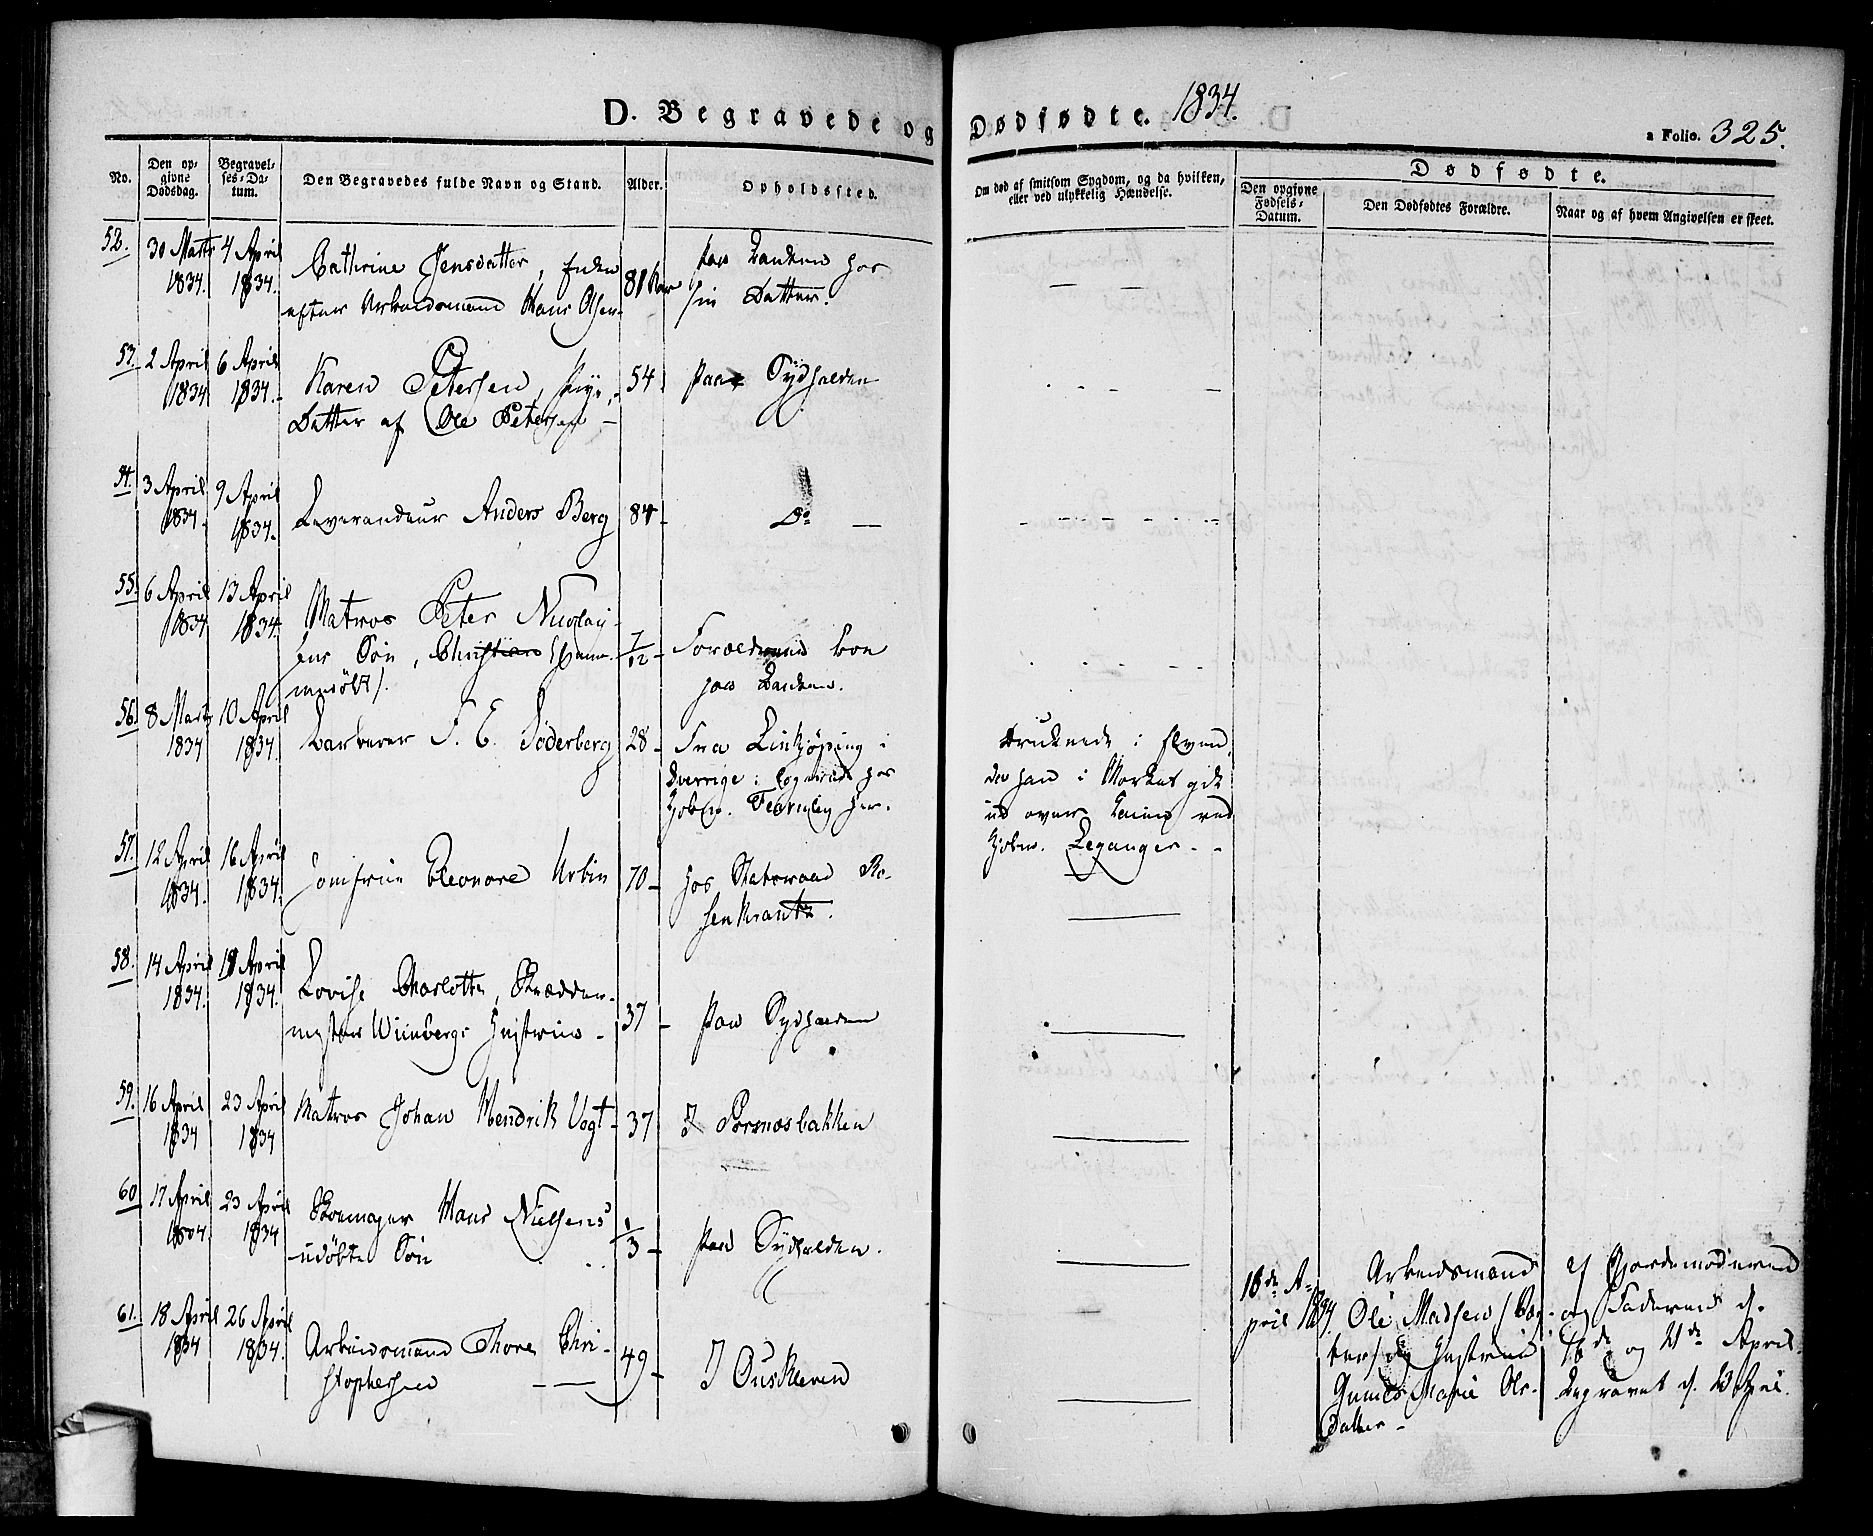 D. Begravede og Dødfødte. 1834.
a Folio. 325.
No.
Den opgivne Dødsdag.
Begravelses-Datum.
Den Begravedes fulde Navn og Stand.
Alder.
Opholdssted.
Om død af smitsom Sygdom, og da hvilken,
eller ved ulykkelig Hændelse.
Dødfødte.
Den opgivne Fødsels-Datum.
Den Dødfødtes Forældre.
Naar og af hvem Angivelsen er skeet.
52. 30 Marts 4 April
1834. 1834.
Cathrine Jensdatter, Enke
efter Arbeidsmand Hans Olsen
81 Aar
paa Banken hos
sin Datter.
53. 2 April 6 April
1834 1834.
Karen Petersen, Pige,
Datter af Ole Petersen
54
paa Sydhalden
54. 3 April 9 April
1834. 1834.
Leverandeur Anders Berg
84
Do
55. 6 April 13 April
1834 1834
Matros Peter Nicolay-
sens Søn, Christian (hjem-
medøbt).
7/12
Forældrene boe
paa Banken.
56. 8 Marts 10 April
1834 1834.
Barberer F. E. Söderberg
28
Fra Linkjöping i
Sverrige; logerede hos
Kjøbm. Fearnley her.
druknede i Elven,
da han i Mørket gik
ud over Kaien ved
Kjøbm. Leganger.
57. 12 April 16 April
1834. 1834.
Jomfrue Eleonore Urbin
70
hos Statsraad Ro-
senkrantz.
58. 14 April 19 April
1834. 1834.
Lovise Charlotte, Skrædder-
mester Wiinbergs Hustrue
37
paa Sydhalden
59. 16 April 23 April
1834 1834
Matros Johan Hendrik Vogt
37
I Porsnæsbakken
60 17 April 23 April
1834 1834
Skomager Hans Nielsens
udøbte Søn
1/3
paa Sydhalden.
61. 18 April 26 April
1834 1834.
Arbeidsmand Thore Chri-
stophersen
49
I Ouskleven
16de A-
pril 1834.
Arbeidsmand
Ole Madsen
og Hustrue
Marie Ols-
Datter
af Gjordemoderen
og Faderen d.
16de og 21de April.
Begravet d. 23 April.